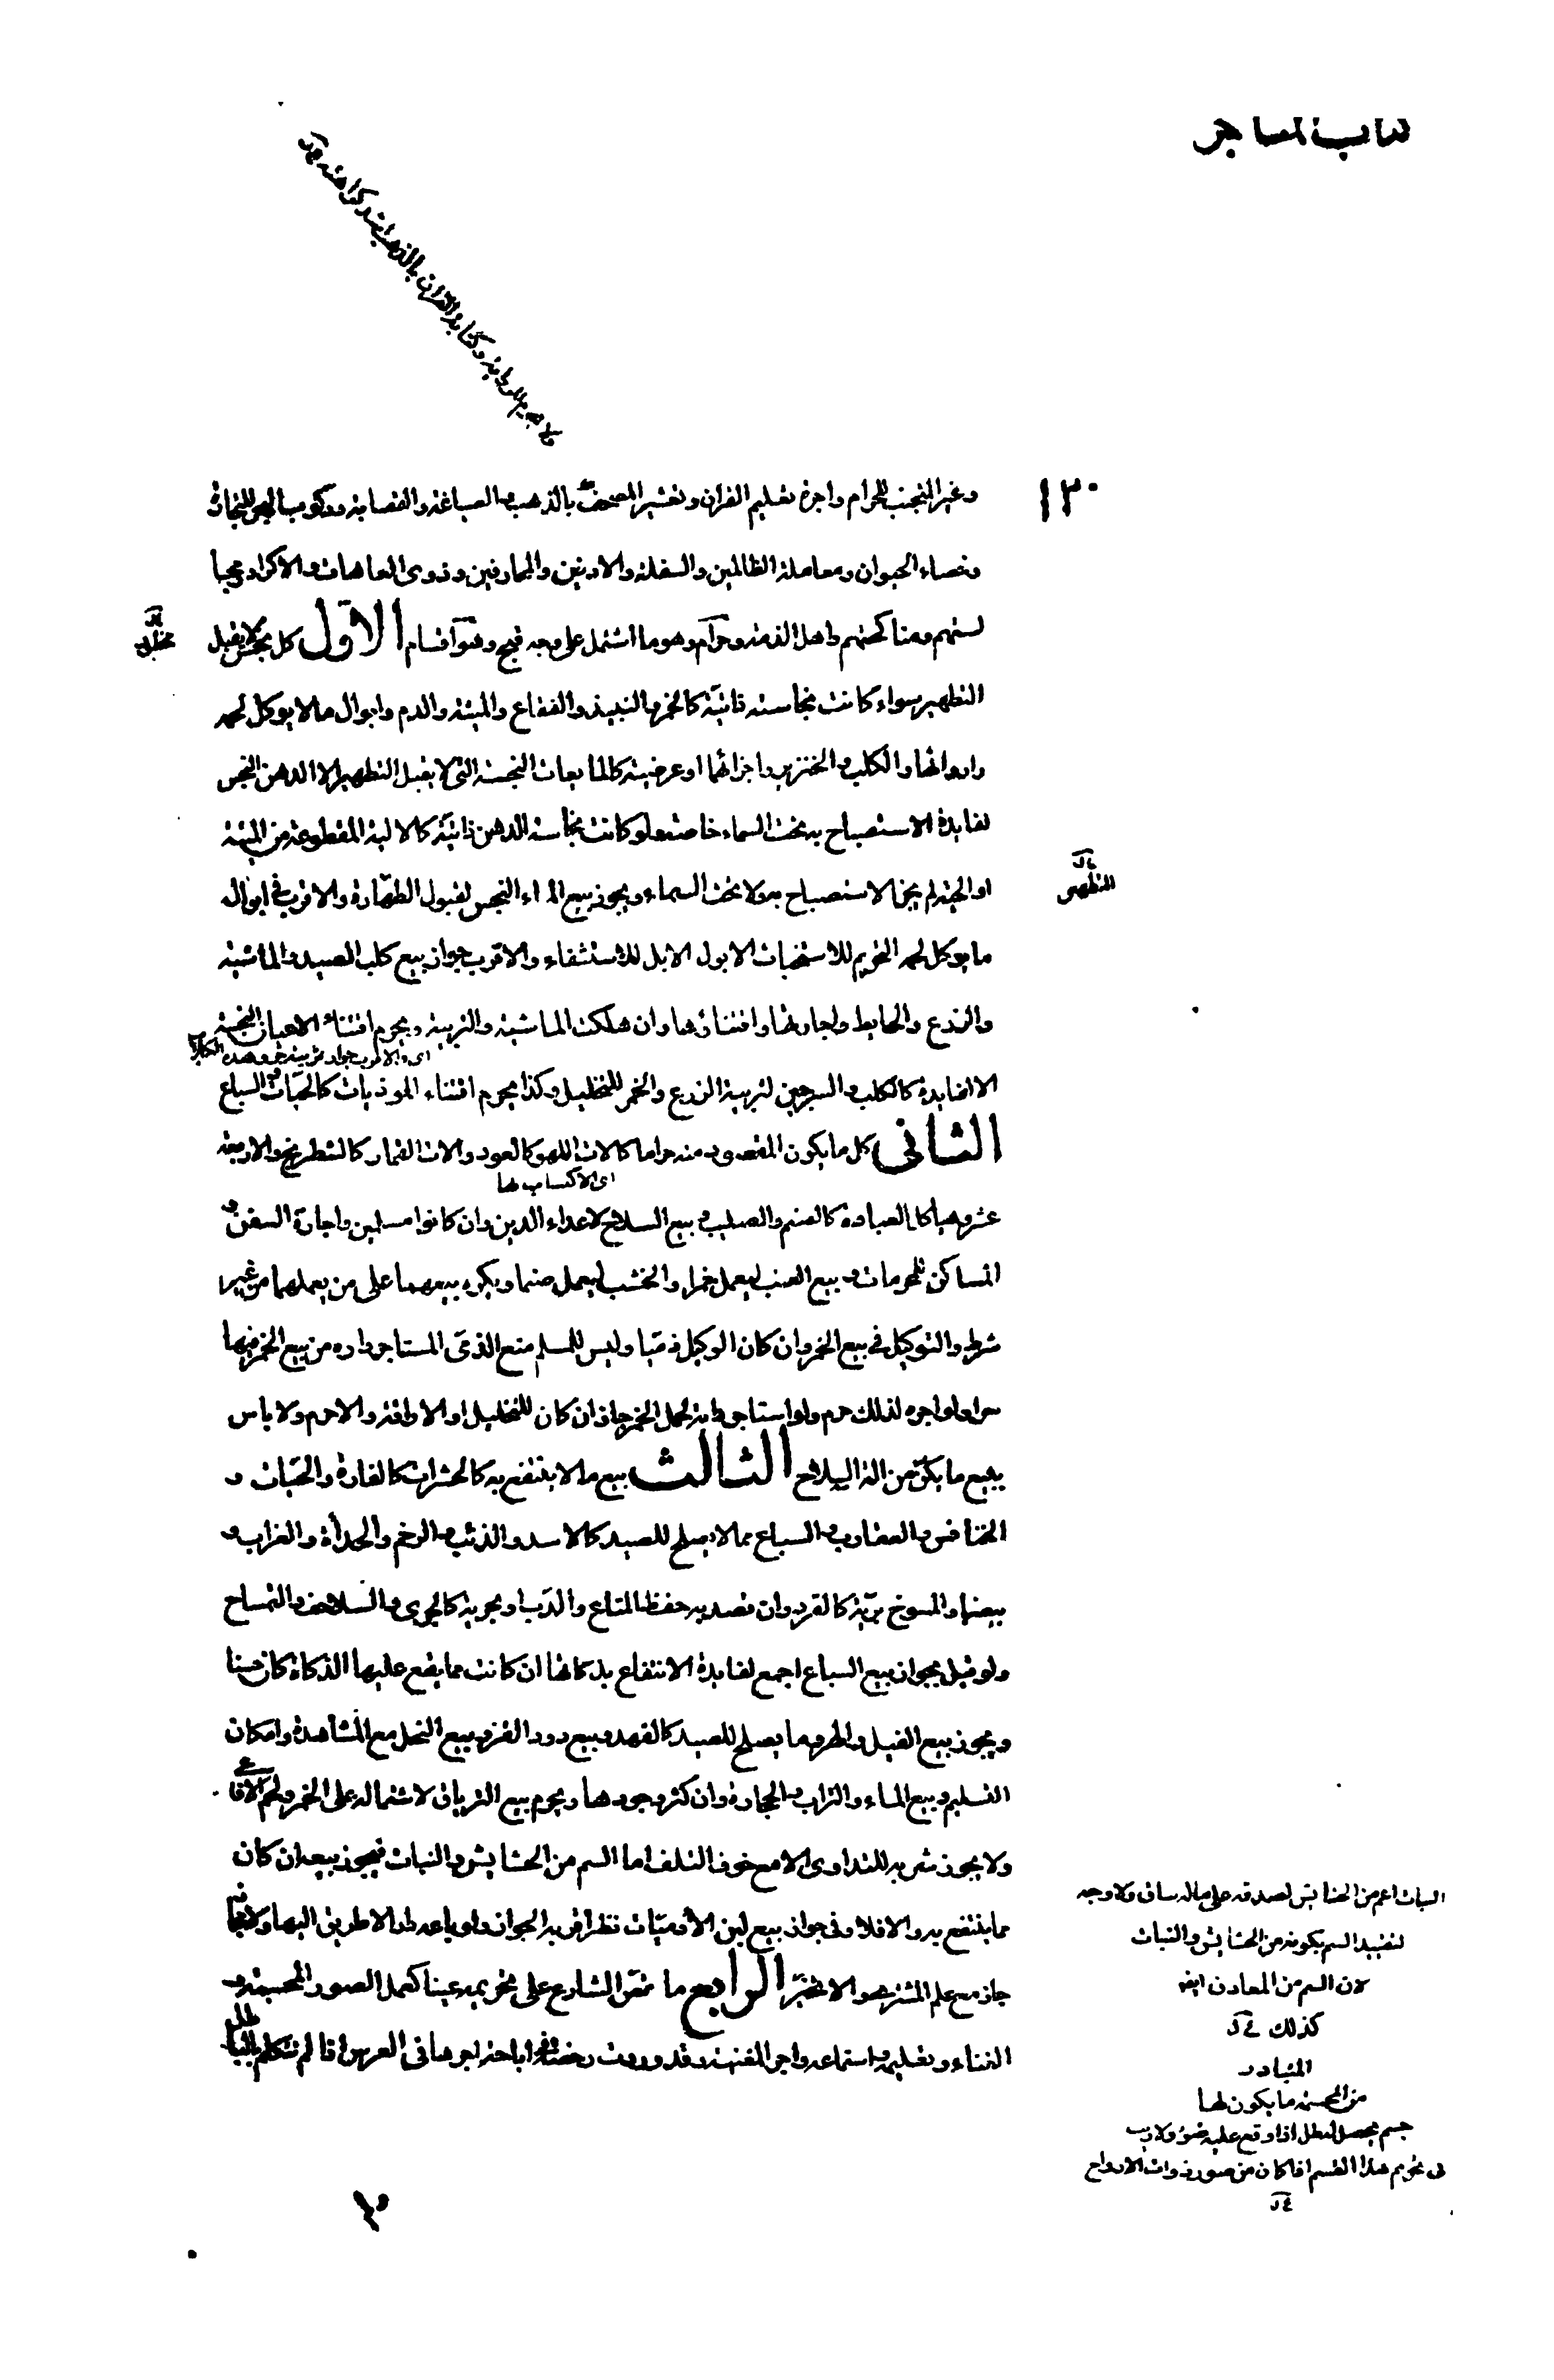 كتاب المتاجر
ولا يحرم للرواية وكتابة القران بالذهب اشد كراهته
١٣٠
وغير المتجنب للحرام واجرة تعليم القران وتعشير المصحف بالذهب والصياغة والقصابة وركوب البحر للتجارة
وخصاء الحيوان ومعاملة الظالمين والسفلة والادنين والمحارفين وذوى العاهات والاكراد ومجا
لستهم ومناكحتهم واهل الذمة وحرام وهو ما اشتمل على وجه قبيح وهو اقسام الاول كل نجس لا يقبل
التطهير سواء كانت نجاسته ذاتية كالخمر والنبيذ والفقاع والميتة والدم وابوال ما لا يوكل لحمه
وارواثها والكلب والخنزير واجزائهما او عرضية كالمايعات النجسة التى لا يقبل التطهير الا الدهن النجس
لفايدة الاستصباح به تحت السماء خاصة ولو كانت نجاسة الدهن ذاتية كالالية المقطوعة من الميتة
او الحية لم يجز الاستصباح به ولا تحت السماء ويجوز بيع الماء النجس لقبول الطهارة والاقرب فى ابوال
التطهير
ما يوكل لحمه التحريم للاستخباث الا بول الابل للاستشفاء والاقرب جواز بيع كلب الصيد والماشية
والزرع والحايط واجارتها واقتنائها وان هلكت الماشية والتربية ويحرم اقتناء الاعيان النجسة
اى والاقرب جواز تربية جرو هذه الكلاب
الا لفايدة كالكلب والسرجين لتربية الزرع والخمر للتخليل وكذا يحرم اقتناء الموذيات كالحيات والسباع
الثانى كل ما يكون المقصود منه حراما كالات اللهو كالعود والات القمار كالشطرنج والاربعة
اى الاكتساب بها
عشر وهياكل العبادة كالصنم والصليب وبيع السلاح لاعداء الدين وان كانوا مسلمين واجارة السفن و
المساكن للمحرمات وبيع العنب ليعمل خمرا والخشب ليعمل صنما ويكره بيعهما على من يعملهما من غير
شرط والتوكيل فى بيع الخمر وان كان الوكيل ذميا وليس للمسلم منع الذمى المستاجر داره من بيع الخمر فيها
سرا ولو اجره لذلك حرم ولو استاجر دابة لحمل الخمر جاز ان كان للتخليل او الاراقة والا حرم ولا باس
ببيع ما يكن من الة السلاح الثالث بيع ما لا ينتفع به كالحشرات كالفارة والحيات و
الخنافس والعقارب والسباع مما لا يصلح للصيد كالاسد والذئب والرخم والحدأة والغراب و
بيضها والمسوخ برية كالقرد وان قصد به حفظ المتاع والدب او بحرية كالجرى والسلاحف والتمساح
ولو قيل بجواز بيع السباع اجمع لفايدة الانتفاع بذكاتها ان كانت مما يقع عليها الذكاة كان حسنا
ويجوز بيع الفيل والهر وما يصلح للصيد كالفهد وبيع دود القز وبيع النحل مع المشاهدة وامكان
التسليم وبيع الماء والتراب والحجارة وان كثر وجودها ويحرم بيع الترياق لاشتماله على الخمر ولحم الافا
عى
ولا يجوز شربه للتداوى الا مع خوف التلف اما السم من الحشايش والنبات فيجوز بيعه ان كان
مما ينتفع به والا فلا وفى جواز بيع لبن الآدميات نظر اقربه الجواز ولو باعه دارا لا طريق اليها ولا مجاز
جاز مع علم المشترى والا تخير الرابع ما نص الشارع على تحريمه عينا كعمل الصور المجسمة و
الغناء وتعليمه واستماعه واجر المغنية وقد وردت رخصة فى اباحة اجرها فى العرس اذا لم تتكلم بالباطل
النبات اعم من الحشايش لصدقه على ماله ساق ولا وجه
لتقييد السم بكونه من الحشايش والنبات
لان السم من المعادن ايضا
كذلك
المتبادر
من المجسمة ما يكون لها
جسم يحصل لها ظل اذا وقع عليه ضوء ولا ريب
فى تحريم هذا القسم اذا كان من صور ذوات الارواح